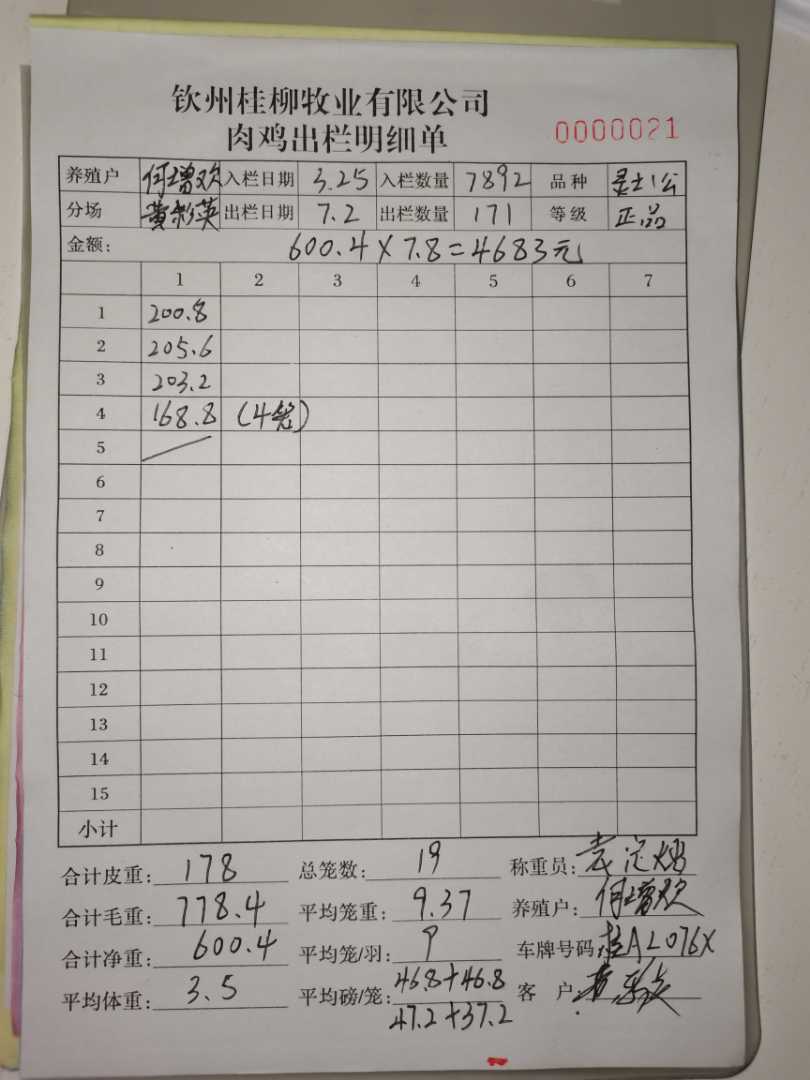 钦州桂柳牧业有限公司
肉鸡出栏明细单 0000021
养殖户 何增欢 入栏日期 3.25 入栏数量 7892 品种 灵土1公
分场 黄彩英 出栏日期 7.2 出栏数量 171 等级 正品
金额: 600.4×7.8=4683元
1 2 3 4 5 6 7
1 200.8
2 205.6
3 203.2
4 168.8 (4笼)
5
6
7
8
9
10
11
12
13
14
15
小计
合计皮重: 178 总笼数: 19 称重员:
合计毛重: 778.4 平均笼重: 9.37 养殖户: 何增欢
合计净重: 600.4 平均笼/羽: 9 车牌号码: 桂AL076X
平均体重: 3.5 平均磅/笼: 46.8+46.8 客 户:
47.2+37.2